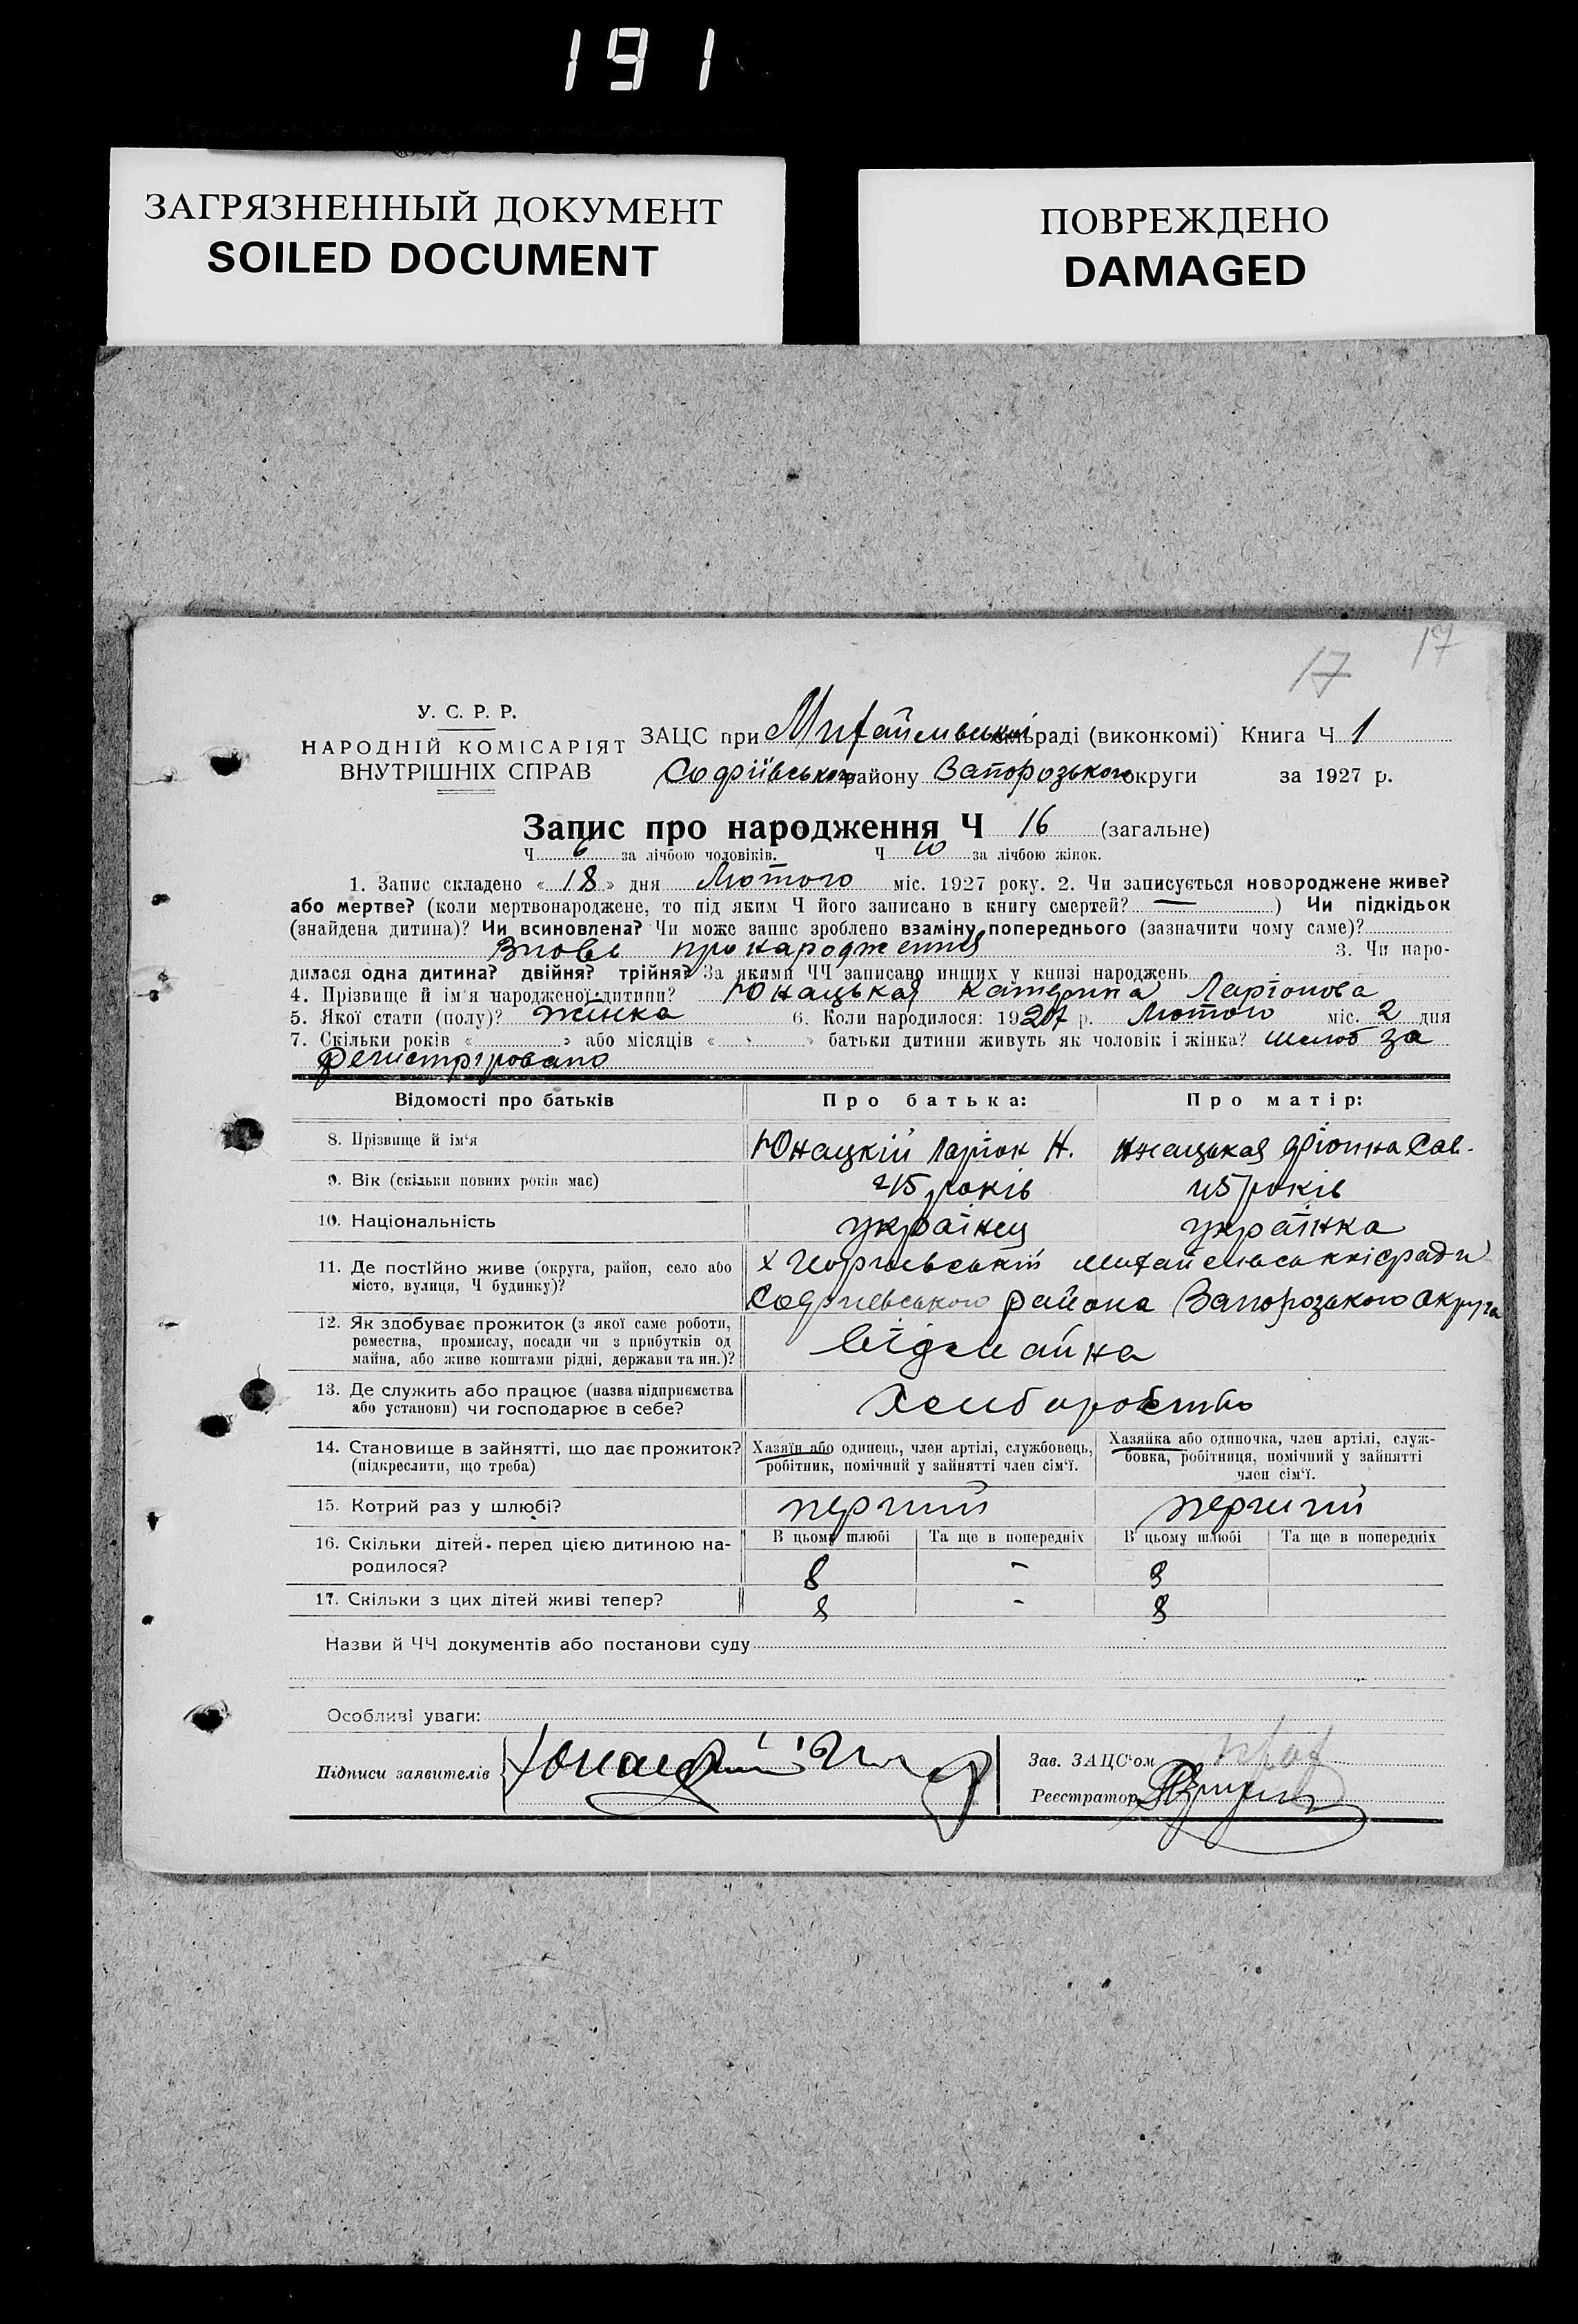 191
ЗАГРЯЗНЕННЫЙ ДОКУМЕНТ
SOILED DOCUMENT
ПОВРЕЖДЕНО
DAMAGED
17 17
У. С. Р. Р.
НАРОДНІЙ КОМІСАРІЯТ
ВНУТРІШНІХ СПРАВ
ЗАЦС при раді (виконкомі) Книга Ч 1
Софіївського району Запорозького округи за 1927 р.
Запис про народження Ч 16 (загальне)
Ч 6 за лічбою чоловіків. Ч 10 за лічбою жінок.
1. Запис складено « 18 » дня Лютого міс. 1927 року. 2. Чи записується новороджене живе?
або мертве? (коли мертвонароджене, то під яким Ч його записано в книгу смертей? — ) Чи підкідьок
(знайдена дитина)? Чи всиновлена? Чи може запис зроблено взаміну попереднього (зазначити чому саме)?
Вновь про народження 3. Чи наро-
дилася одна дитина? двійня? трійня? За якими ЧЧ записано инших у книзі народжень
4. Прізвище й ім'я народженої дитини? Юнацькая Катерина Ларіонова
5. Якої стати (полу)? Жінка 6. Коли народилося: 1927 р. Лютого міс. 2 дня
7. Скільки років « » або місяців « » батьки дитини живуть як чоловік і жінка? Шлюб за
регистрıровано
Відомості про батьків Про батька: Про матір:
8. Прізвище й ім'я Юнацкій Ларіон Н.
9. Вік (скільки повних років має) 45 років 45 років
10. Національність українец українка
11. Де постійно живе (округа, район, село або
місто, вулиця, Ч будинку)?
района Запорозького округа
12. Як здобуває прожиток (з якої саме роботи,
ремества, промислу, посади чи з прибутків од
майна, або живе коштами рідні, держави та ин.)?
13. Де служить або працює (назва підприємства
або установи) чи господарює в себе?
14. Становище в зайнятті, що дає прожиток?
(підкреслити, що треба)
Хазяїн або одинець, член артілі, службовець,
робітник, помічний у зайнятті член сім'ї.
Хазяйка або одиночка, член артілі, служ-
бовка, робітниця, помічний у зайнятті
член сім'ї.
15. Котрий раз у шлюбі? перший перший
16. Скільки дітей перед цією дитиною на-
родилося?
В цьому шлюбі Та ще в попередніх В цьому шлюбі Та ще в попередніх
8 - 8
17. Скільки з цих дітей живі тепер? 8 - 8
Назви й ЧЧ документів або постанови суду
Особливі уваги:
Підписи заявителів
Зав. ЗАЦС'ом
Реєстратор